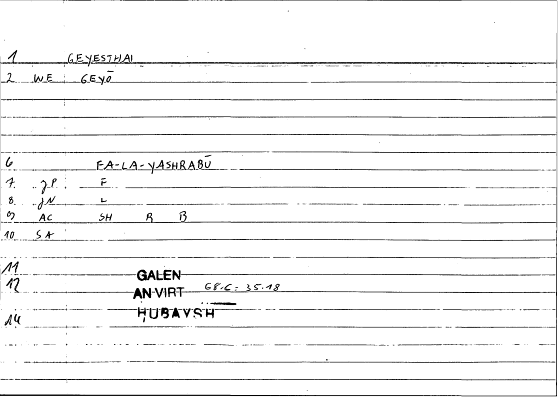 1 GEYESTHAI
2 WE GEYŌ
6 FA-LA-YASHRABŪ
7. gP. F
8. gN L
9 AC SH R B
10 SA
11
12 GALEN
AN·VIRT 68.6=35.18
14 HUBAYSH